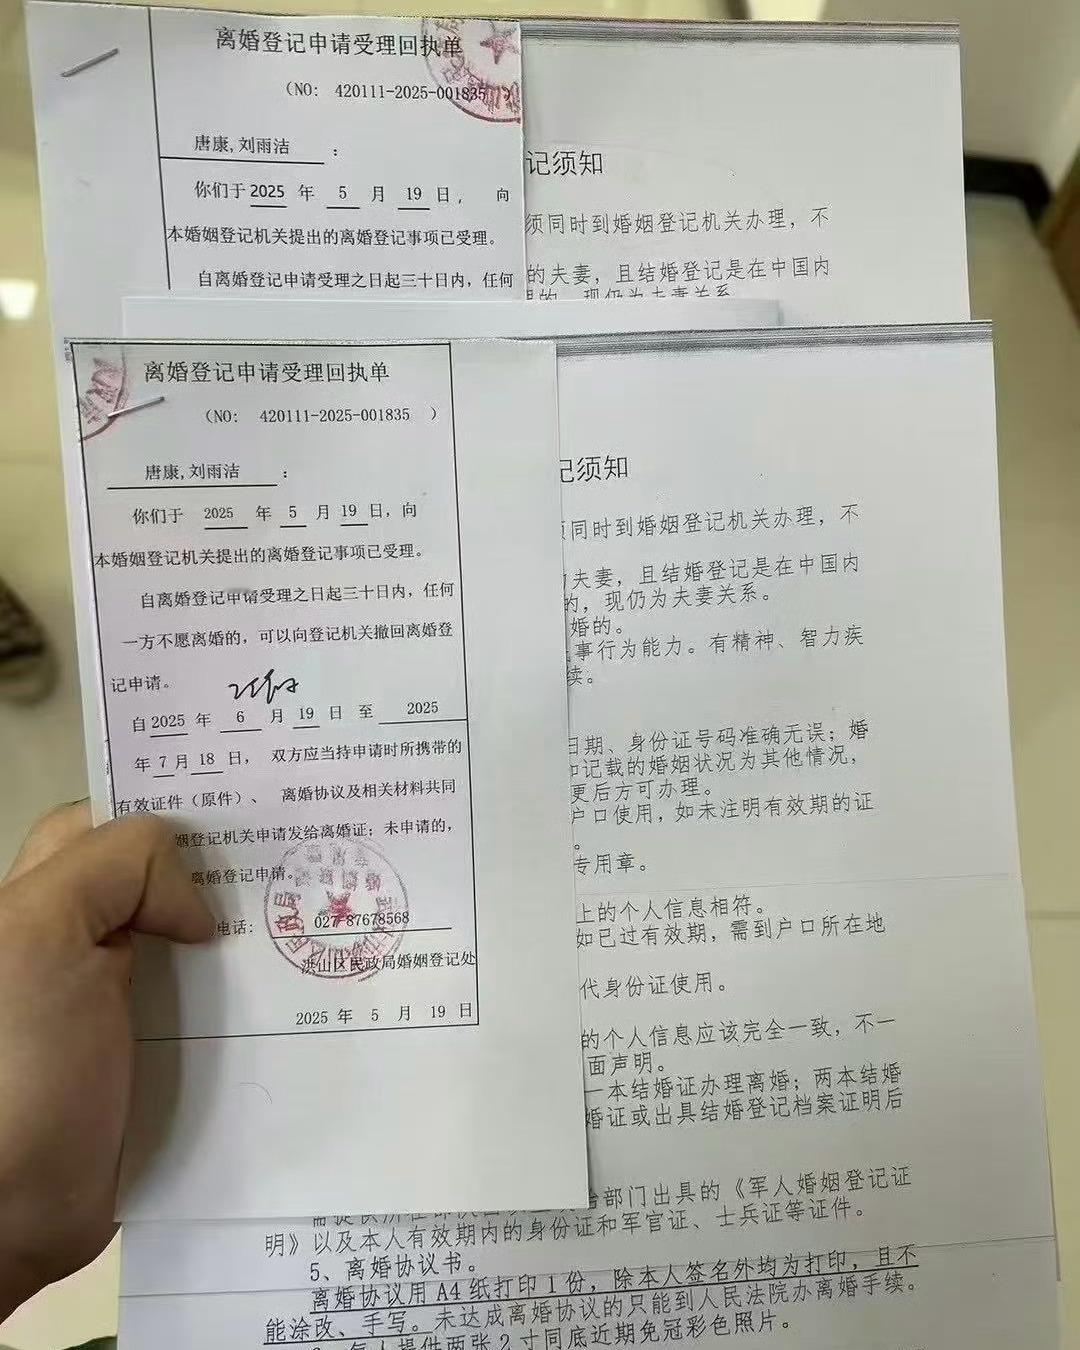 离婚登记申请受理回执单
（NO: 420111-2025-001835 ）
唐康,刘雨洁 ：
你们于2025 年 5 月 19 日， 向
本婚姻登记机关提出的离婚登记事项已受理。
自离婚登记申请受理之日起三十日内，任何
记须知
须同时到婚姻登记机关办理，不
的夫妻，且结婚登记是在中国内
现仍为夫妻关系
离婚登记申请受理回执单
（NO: 420111-2025-001835 ）
唐康,刘雨洁 ：
你们于 2025 年 5 月 19 日，向
本婚姻登记机关提出的离婚登记事项已受理。
自离婚登记申请受理之日起三十日内，任何
一方不愿离婚的，可以向登记机关撤回离婚登
记申请。
自2025 年 6 月 19 日 至 2025
年 7 月 18 日， 双方应当持申请时所携带的
有效证件（原件）、 离婚协议及相关材料共同
姻登记机关申请发给离婚证；未申请的，
离婚登记申请。
电话： 027-87678568
洪山区民政局婚姻登记处
2025 年 5 月 19 日
记须知
同时到婚姻登记机关办理，不
夫妻，且结婚登记是在中国内
的，现仍为夫妻关系。
婚的。
事行为能力。有精神、智力疾
续。
日期、身份证号码准确无误；婚
和记载的婚姻状况为其他情况，
更后方可办理。
户口使用，如未注明有效期的证
。
专用章。
上的个人信息相符。
如已过有效期，需到户口所在地
代身份证使用。
的个人信息应该完全一致，不一
面声明。
一本结婚证办理离婚；两本结婚
婚证或出具结婚登记档案证明后
部门出具的《军人婚姻登记证
明》以及本人有效期内的身份证和军官证、士兵证等证件。
5、离婚协议书。
离婚协议用A4纸打印1份，除本人签名外均为打印，且不
能涂改、手写。未达成离婚协议的只能到人民法院办离婚手续。
每人提供两张2寸同底近期免冠彩色照片。